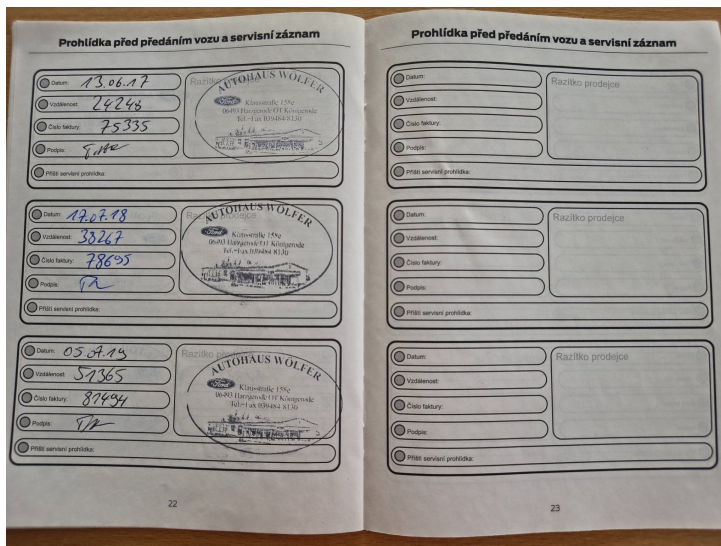 Prohlídka před předáním vozu a servisní záznam
Datum: 13.06.17
Vzdálenost: 24248
Číslo faktury: 75335
Podpis:
Příští servisní prohlídka:
Razítko prodejce
AUTOHAUS WÖLFER
Ford
Klausstraße 158e
06493 Harzgerode OT Königerode
Tel.=Fax 039484/8130
Datum: 17.07.18
Vzdálenost: 38267
Číslo faktury: 78695
Podpis:
Příští servisní prohlídka:
Razítko prodejce
AUTOHAUS WÖLFER
Ford
Klausstraße 158e
06493 Harzgerode OT Königerode
Tel.=Fax 039484/8130
Datum: 05.07.19
Vzdálenost: 51365
Číslo faktury: 81494
Podpis:
Příští servisní prohlídka:
Razítko prodejce
AUTOHAUS WÖLFER
Ford
Klausstraße 158e
06493 Harzgerode OT Königerode
Tel.=Fax 039484/8130
22
Prohlídka před předáním vozu a servisní záznam
Datum:
Vzdálenost:
Číslo faktury:
Podpis:
Příští servisní prohlídka:
Razítko prodejce
Datum:
Vzdálenost:
Číslo faktury:
Podpis:
Příští servisní prohlídka:
Razítko prodejce
Datum:
Vzdálenost:
Číslo faktury:
Podpis:
Příští servisní prohlídka:
Razítko prodejce
23